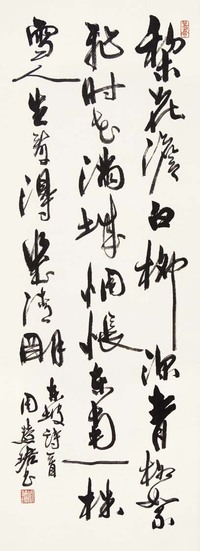 梨花澹白柳深青柳絮
飛时花满城惆悵东南一株
雪人生看得幾清明
东坡诗一首
周慧珺书